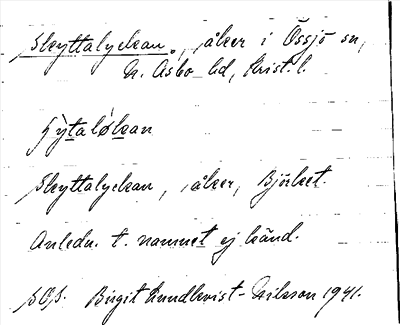 Skyttalyckan, åker i Össjö sn,
N. Åsbo hd, Krist. l.
Skyttalyckan, åker, Björket.
Anledn. t. namnet ej känd.
Birgit Lundkvist-Nilsson 1941.